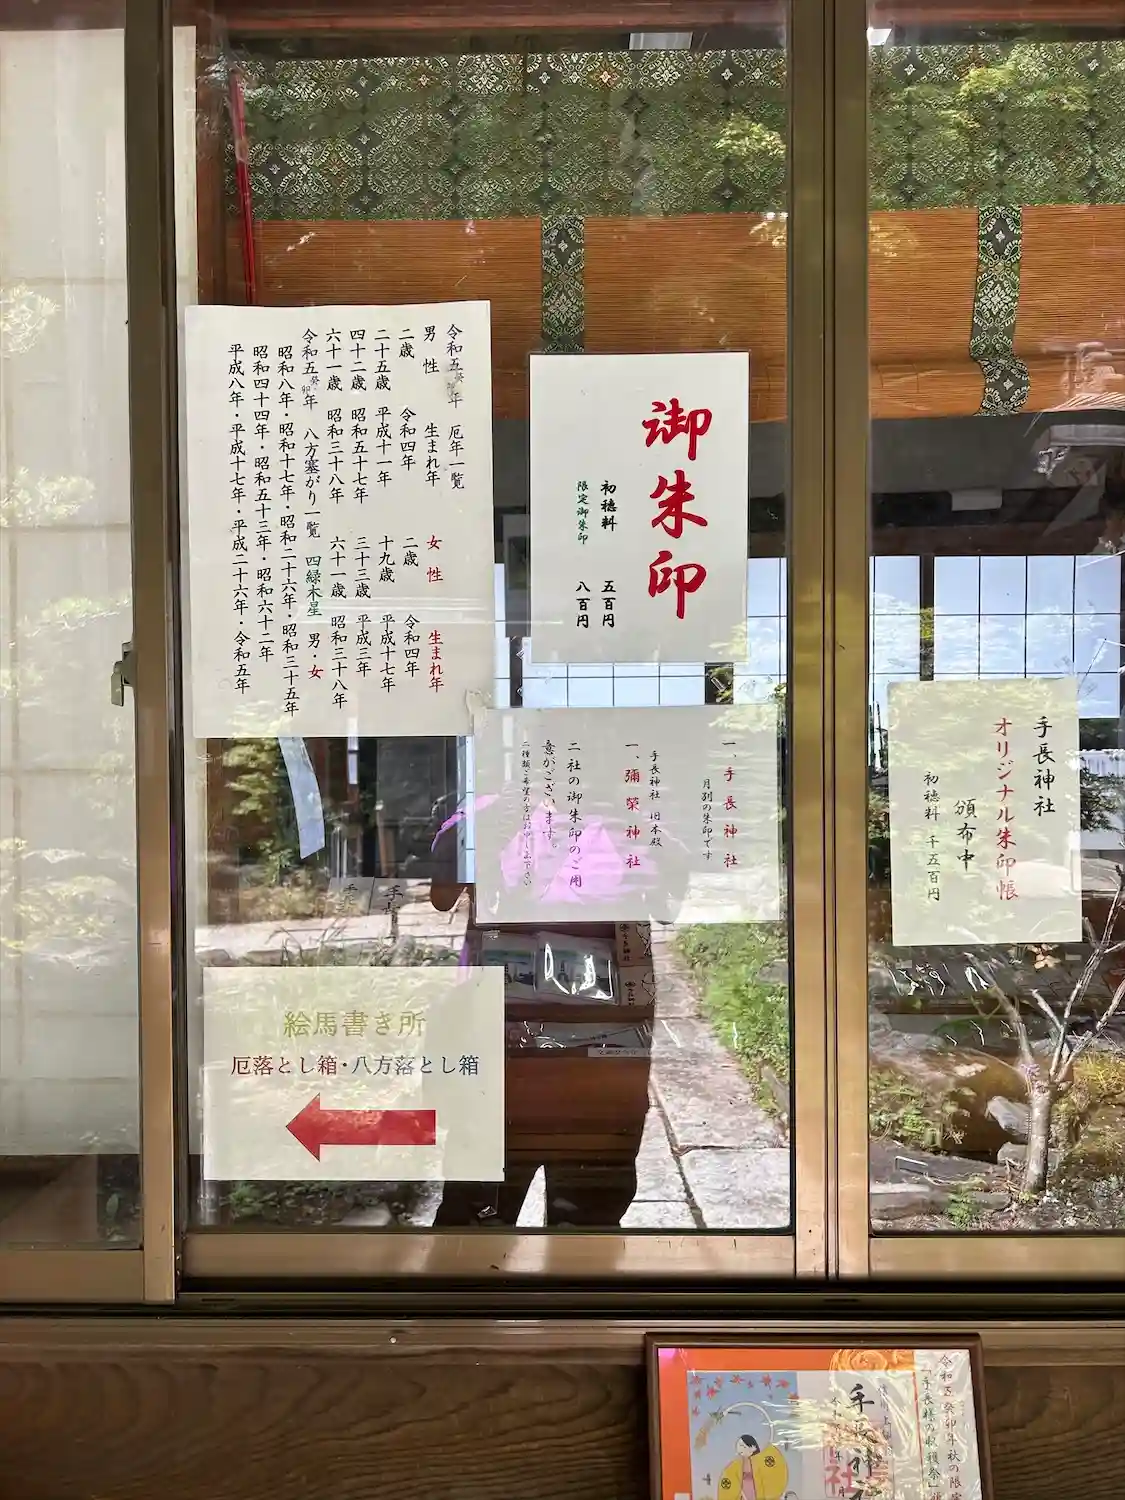 令和五癸卯年　厄年一覧
男性　生まれ年　女性　生まれ年
二歳　令和四年　二歳　令和四年
二十五歳　平成十一年　十九歳　平成十七年
四十二歳　昭和五十七年　三十三歳　平成三年
六十一歳　昭和三十八年　六十一歳　昭和三十八年
令和五癸卯年　八方塞がり一覧　四緑木星　男・女
昭和八年・昭和十七年・昭和二十六年・昭和三十五年
昭和四十四年・昭和五十三年・昭和六十二年
平成八年・平成十七年・平成二十六年・令和五年
御朱印
初穂料　五百円
限定御朱印　八百円
一、手長神社
月別の朱印です
手長神社　旧本殿
一、彌榮神社
二社の御朱印のご用
意がございます。
二種類ご希望の方はお申し出下さい
手長神社
オリジナル朱印帳
頒布中
初穂料　千五百円
絵馬書き所
厄落とし箱・八方落とし箱
令和五癸卯年秋の限定
「手長様の収穫祭」
手長神社